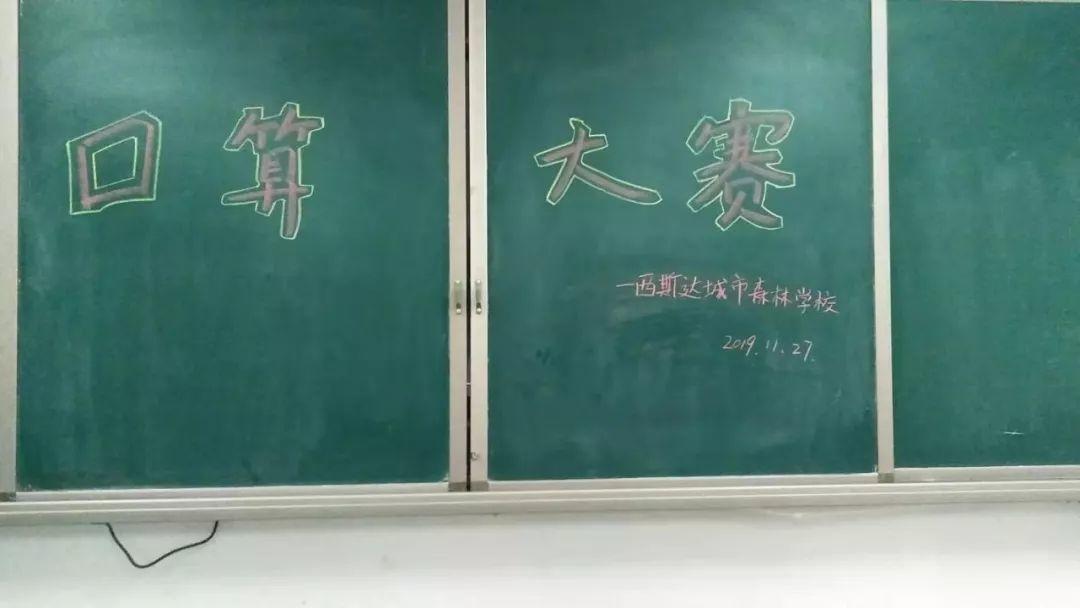 口算大赛
一西斯达城市森林学校
2019.11.27.